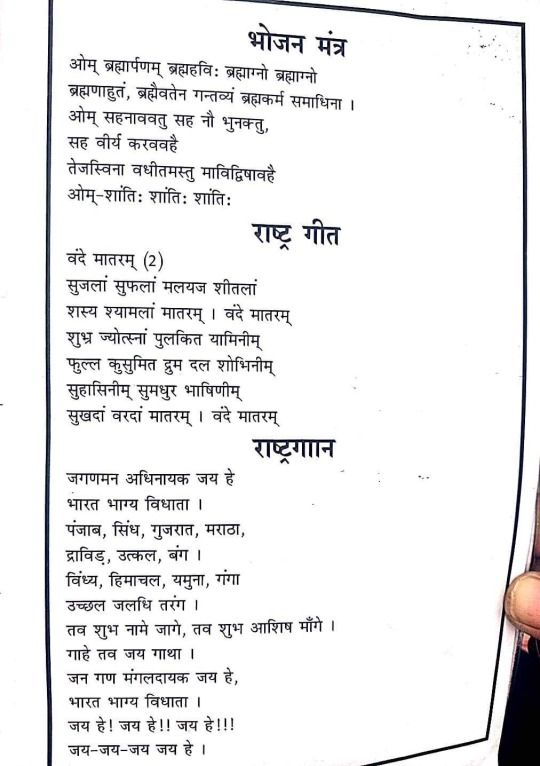 भोजन मंत्र
ओम् ब्रह्मार्पणम् ब्रह्महवि: ब्रह्माग्नो ब्रह्माग्नो
ब्रह्मणाहुतं, ब्रह्मैवतेन गन्तव्यं ब्रह्मकर्म समाधिना ।
ओम् सहनाववतु सह नौ भुनक्तु,
सह वीर्य करववहै
तेजस्विना वधीतमस्तु माविद्विषावहै
ओम्-शांति: शांति: शांति:
राष्ट्र गीत
वंदे मातरम् (2)
सुजलां सुफलां मलयज शीतलां
शस्य श्यामलां मातरम् । वंदे मातरम्
शुभ्र ज्योत्स्नां पुलकित यामिनीम्
फुल्ल कुसुमित द्रुम दल शोभिनीम्
सुहासिनीम् सुमधुर भाषिणीम्
सुखदां वरदां मातरम् । वंदे मातरम्
राष्ट्रगाान
जगणमन अधिनायक जय हे
भारत भाग्य विधाता ।
पंजाब, सिंध, गुजरात, मराठा,
द्राविड़, उत्कल, बंग ।
विंध्य, हिमाचल, यमुना, गंगा
उच्छल जलधि तरंग ।
तव शुभ नामे जागे, तव शुभ आशिष माँगे ।
गाहे तव जय गाथा ।
जन गण मंगलदायक जय हे,
भारत भाग्य विधाता ।
जय हे! जय हे!! जय हे!!!
जय-जय-जय जय हे ।